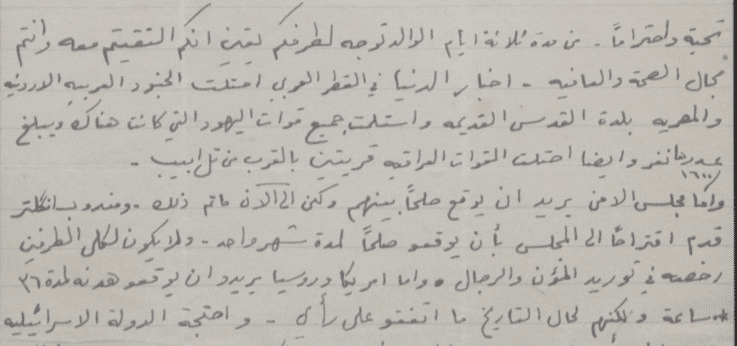 تحية واحتراماً . من مدة ثلاثة ايام الوالد توجه لطرفكم يقين انكم التقيتم معه وانتم
بحال الصحة والعافيه - اخبار الدنيا في القطر العربي احتلت الجنود العربيه الاردنيه
والمصريه بلدة القدس القديمه واستلمت جميع قوات اليهود التي كانت هناك ويبلغ
عددها ١٦٠٠ نفر وايضا احتلت القوات العراقيه قريتين بالقرب من تل ابيب -
واما مجلس الامن يريد ان يوقع صلحاً بينهم ولكن الى الآن ما تم ذلك - ومندوب انكلتر
قدم اقتراحاً الى المجلس بأن يوقعو صلحاً لمدة شهر واحد - ولا يكون لكلى الطرفين
رخصه في توريد المؤن والرجال ٠ واما امريكا وروسيا يريدو ان يوقعو هدنه لمدة ٣٦
ساعة ولكنهم لحال التاريخ ما اتفقو على رأي - واحتجة الدولة الاسرائيليه